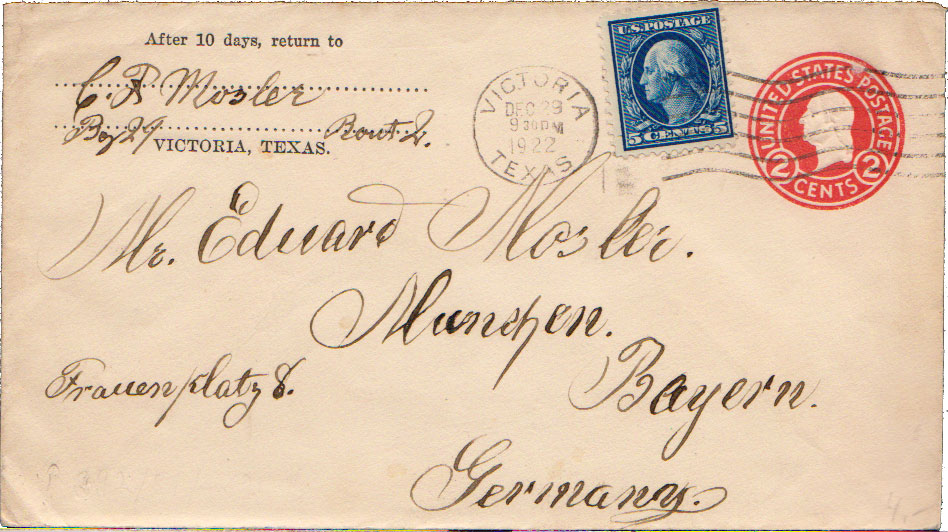 After 10 days, return to
C. P. Mosler
Box 29 Rout 2.
VICTORIA, TEXAS.
VICTORIA
DEC 29
930 PM
1922
TEXAS
U.S. POSTAGE
5 CENTS 5
UNITED STATES POSTAGE
2 CENTS 2
Mr. Eduard Mosler.
Munchen.
Frauenplatz 8.
Bayern.
Germany.